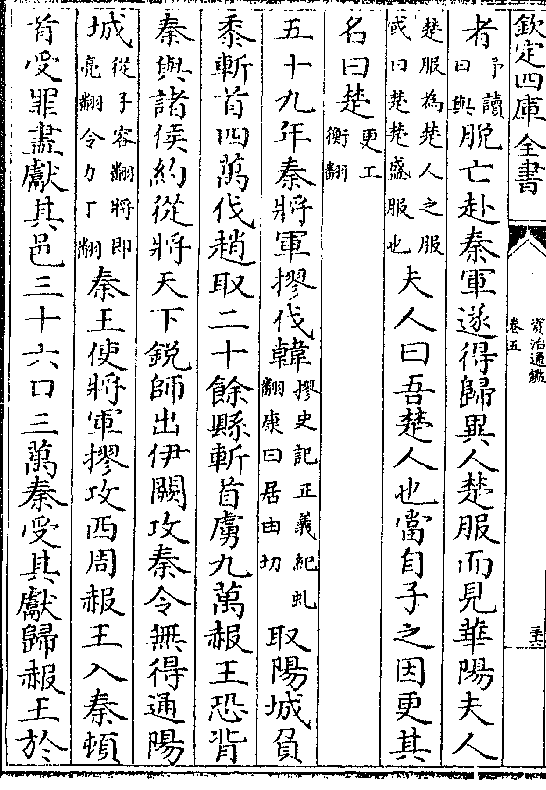 欽定四庫全書
資治通鑑
卷五
者予讀曰與脱亡赴秦軍遂得歸異人楚服而見華陽夫人
楚服為楚人之服或曰楚楚盛服也夫人曰吾楚人也當自子之因更其
名曰楚更工衡翻
五十九年秦將軍摎伐韓摎史記正義紀虬翻康曰居由切取陽城負
黍斬首四萬伐趙取二十餘縣斬首虜九萬赧王恐背
秦與諸侯約從將天下鋭師出伊闕攻秦令無得通陽
城從子容翻將即亮翻令力丁翻秦王使將軍摎攻西周赧王入秦頓
首受罪盡獻其邑三十六口三萬秦受其獻歸赧王於